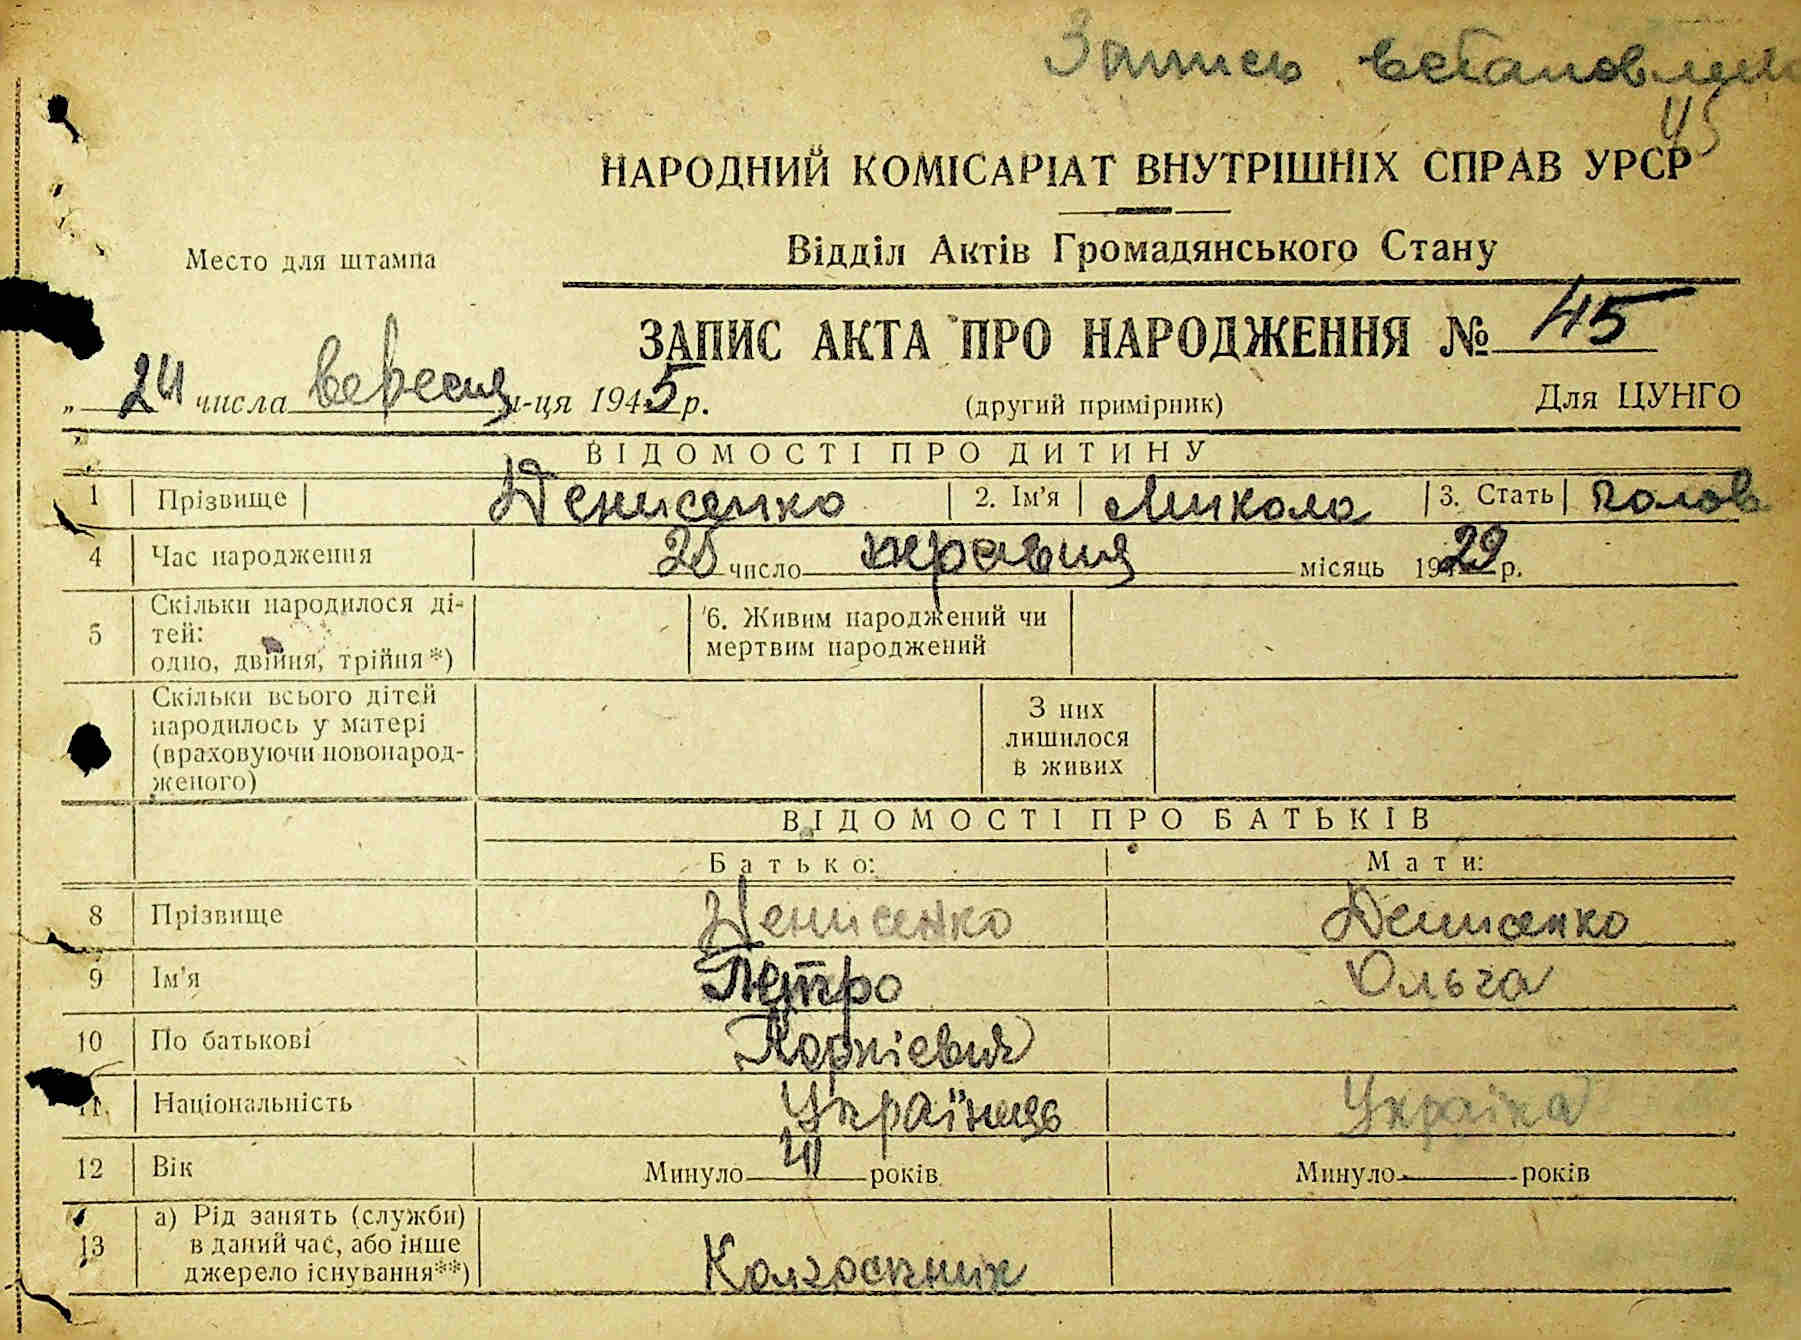 Запись встановлен
45
НАРОДНИЙ КОМІСАРІАТ ВНУТРІШНІХ СПРАВ УРСР
Место для штампа
Відділ Актів Громадянського Стану
ЗАПИС АКТА ПРО НАРОДЖЕННЯ № 45
„ 24 числа вересня м-ця 1945 р. (другий примірник) Для ЦУНГО
ВІДОМОСТІ ПРО ДИТИНУ
1 Прізвище Денисенко 2. Ім'я Микола 3. Стать полов
4 Час народження 25 число травня місяць 1929 р.
5 Скільки народилося ді-
тей:
одно, двійня, трійня*)
6. Живим народжений чи
мертвим народжений
Скільки всього дітей
народилось у матері
(враховуючи новонарод-
женого)
З них
лишилося
в живих
ВІДОМОСТІ ПРО БАТЬКІВ
Батько: Мати:
8 Прізвище Денисенко Денисенко
9 Ім'я Петро Ольга
10 По батькові Корнієвич
11. Національність Українець Українка
12 Вік Минуло 41 років Минуло років
13 а) Рід занять (служби)
в даний час, або інше
джерело існування**)
Колгоспник